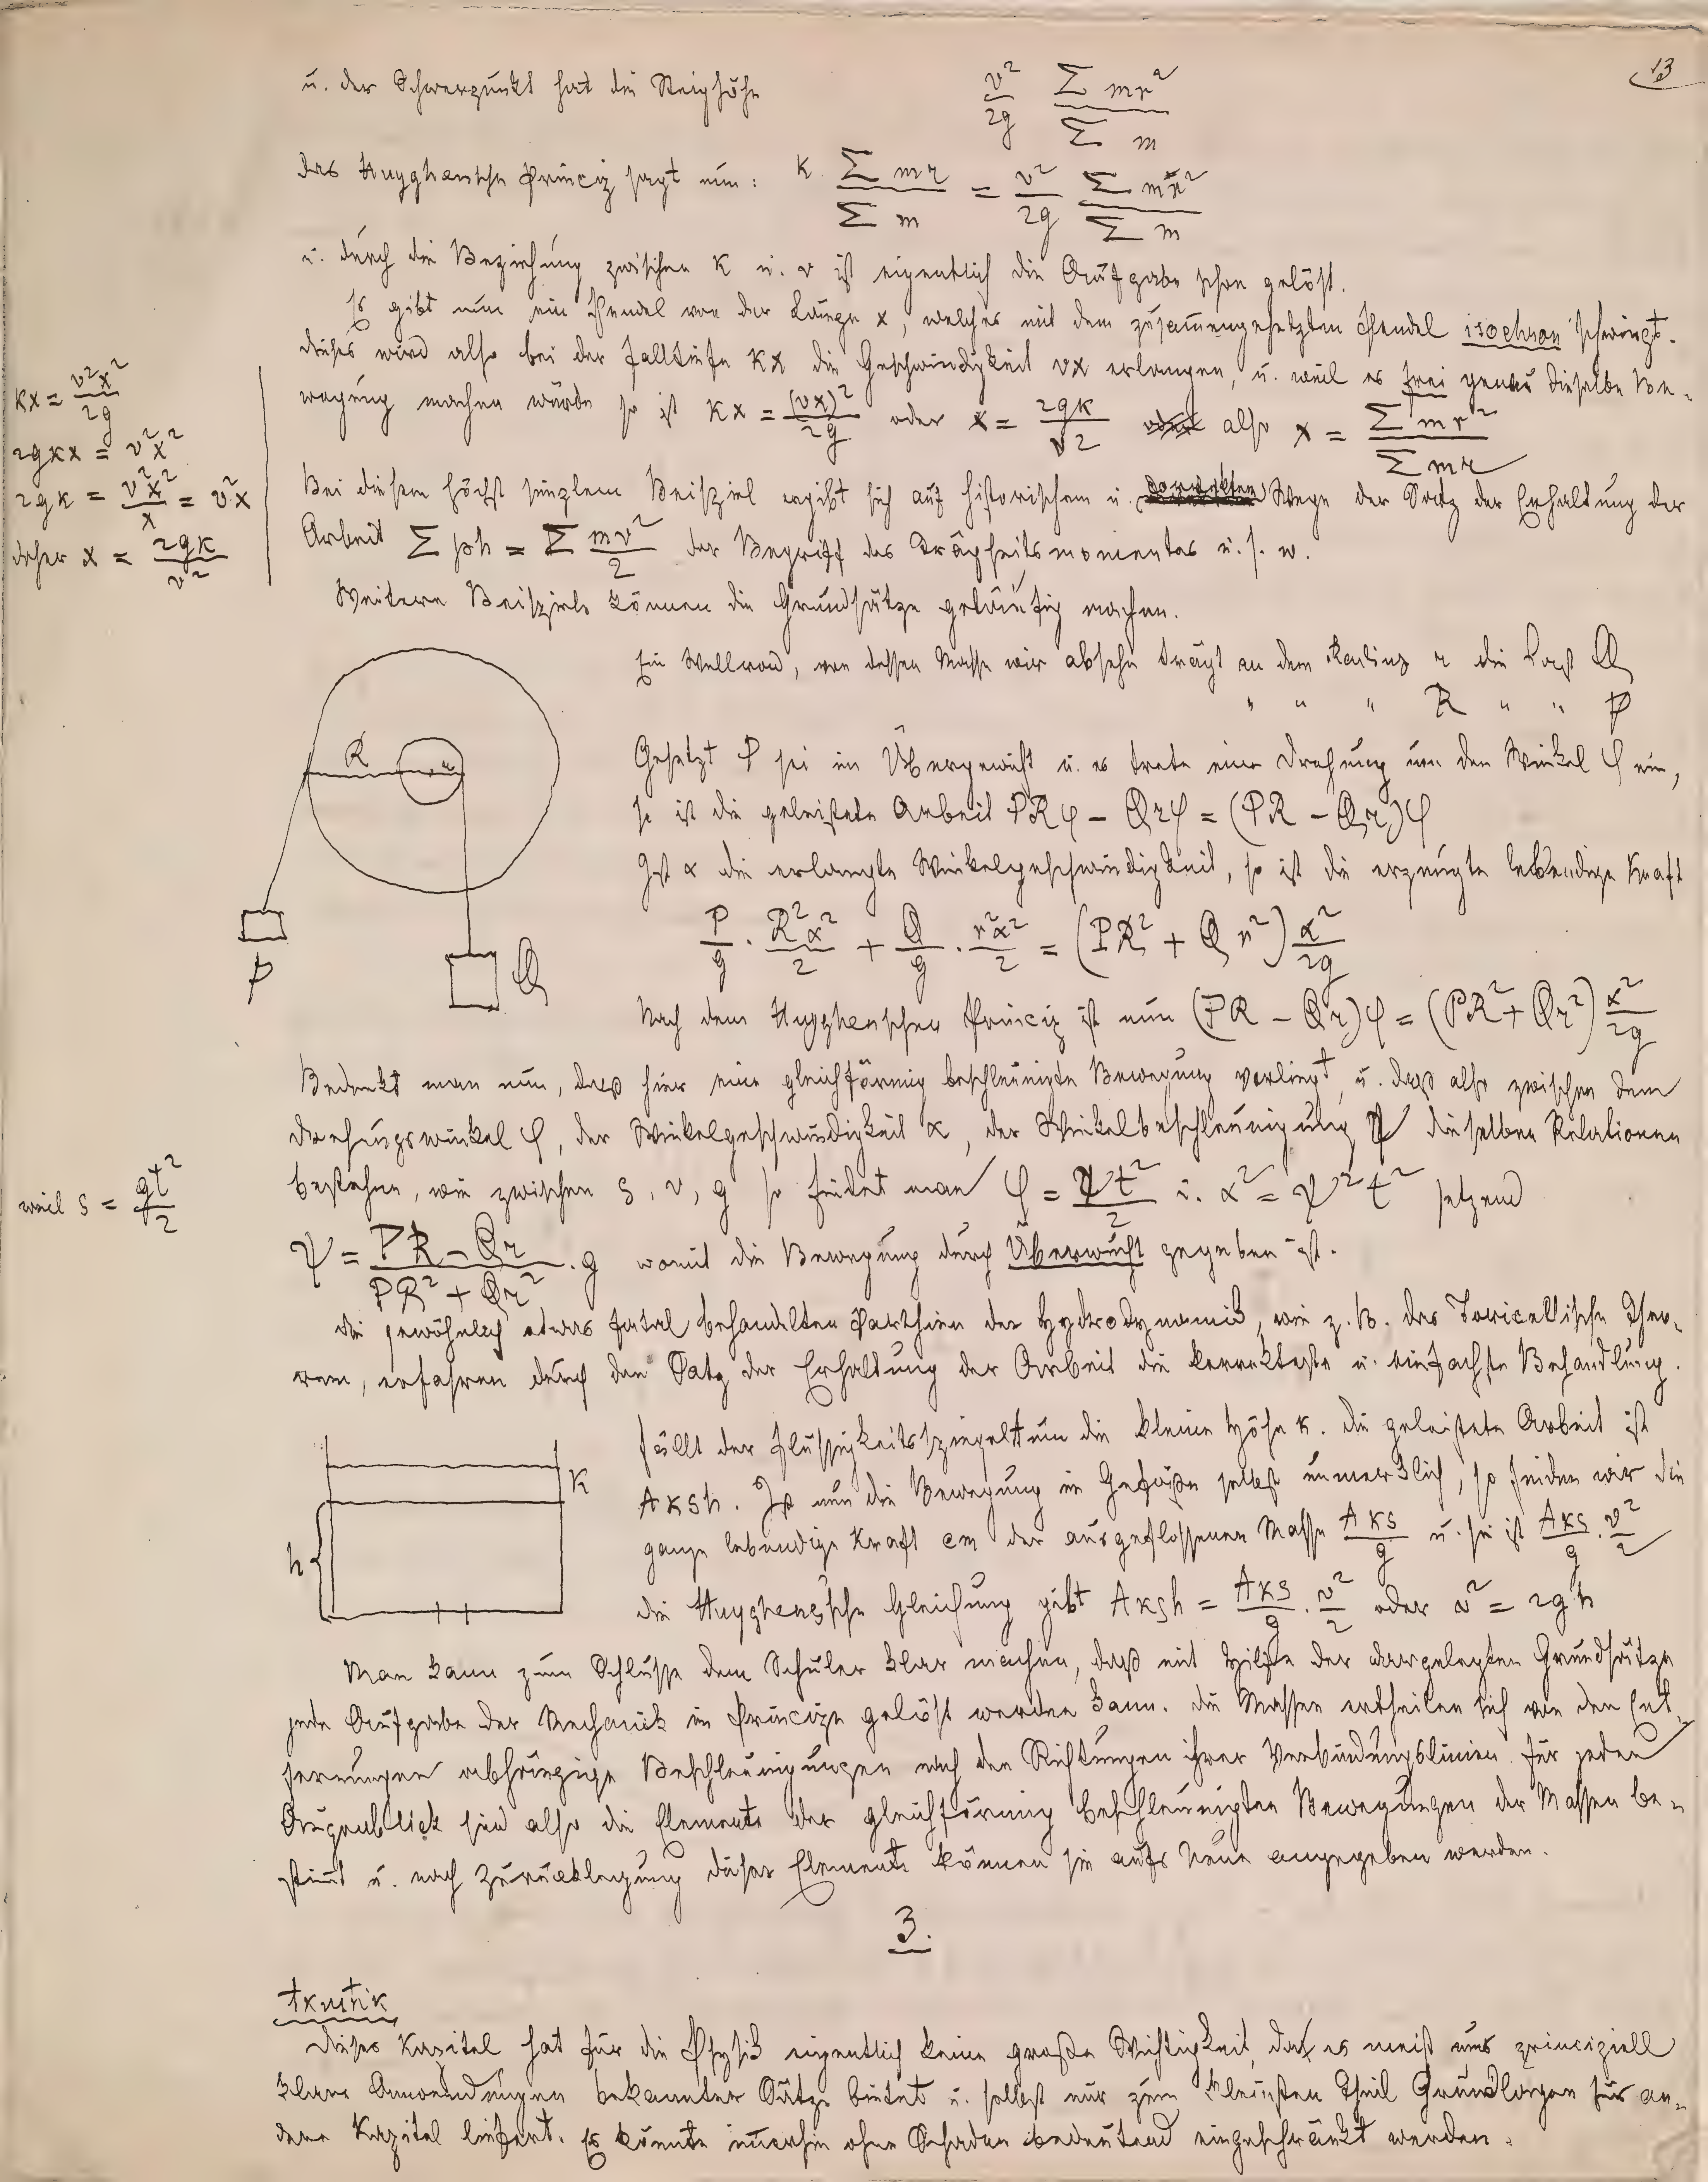 13
u. der Schwerpunkt hat die Steighöhe v²/2g Σmr²/Σm
das Huyghensche Princip sagt nun: k Σmr/Σm = v²/2g Σmr²/Σm
u. durch die Beziehung zwischen k u. v ist eigentlich die Aufgabe schon gelöst.
Es gibt nun ein Pendel von der Länge x, welches mit dem zusammengesetzten Pendel isochron schwingt.
dieses wird also bei der Falltiefe kx die Geschwindigkeit vx erlangen, u. weil es frei genau dieselbe Be-
wegung machen würde so ist kx = (vx)²/2g oder x = 2gk/v² also x = Σmr²/Σmr
kx = v²x²/2g
2gkx = v²x²
2gk = v²x²/x = v²x
daher x = 2gk/v²
Bei diesem höchst simplem Beispiel ergibt sich auf historischem u. Wege der Satz der Erhaltung der
Arbeit Σph = Σ mv²/2 der Begriff des Trägheitsmomentes u. s. w.
Weitere Beispiele können die Grundsätze geläufig machen.
Ein Wellrad, von dessen Masse wir absehn trägt an dem Radius r die Last Q
" " " R " " P
Gesetzt P sei im Übergewicht u. es trete eine Drehung um den Winkel φ ein,
so ist die geleistete Arbeit PRφ – Qrφ = (PR – Qr)φ
Ist α die erlangte Winkelgeschwindigkeit, so ist die erzeugte lebendige Kraft
P/g · R²α²/2 + Q/g · r²α²/2 = (PR² + Qr²) α²/2g
Nach dem Huyghenschen Princip ist nun (PR – Qr)φ = (PR² + Qr²) α²/2g
R
r
P
Q
Bedenkt man nun, daß hier eine gleichförmig beschleunigte Bewegung vorliegt, u. daß also zwischen dem
Drehungswinkel φ, der Winkelgeschwindigkeit α, der Winkelbeschleunigung ψ dieselben Relationen
bestehen, wie zwischen s, v, g so findet man φ = ψt²/2 u. α² = ψ²t² setzend
weil s = gt²/2
ψ = PR – Qr/PR² + Qr² · g womit die Bewegung durch Überwucht gegeben ist.
Die gewöhnlich etwas fatal behandelten Parthien der Hydrodynamik, wie z. B. das Toricellische Theo-
rem, erfahren durch den Satz der Erhaltung der Arbeit die korrekteste u. einfachste Behandlung.
Fällt der Flüssigkeitsspiegel um die kleine Höhe k. die geleistete Arbeit ist
Aksh. Ist nun die Bewegung im Gefäße selbst unmerklich, so finden wir die
ganze lebendige Kraft an der ausgeflossenen Masse Aks/g u. sie ist Aks/g · v²/2
die Huyghens'sche Gleichung gibt Aksh = Aks/g · v²/2 oder v² = 2gh
k
h
Man kann zum Schlusse dem Schüler klar machen, daß mit Hilfe der dargelegten Grundsätze
jede Aufgabe der Mechanik im Principe gelöst werden kann. Die Massen ertheilen sich von den Ent-
fernungen abhängige Beschleunigungen nach den Richtungen ihrer Verbindungslinien. Für jeden
Augenblick sind also die Elemente der gleichförmig beschleunigten Bewegungen der Massen be-
stimmt u. nach Zurücklegung dieser Elemente können sie aufs Neue angegeben werden.
3.
Akustik
Dieses Kapitel hat für die Physik eigentlich keine große Wichtigkeit, da es meist nur principiell
klare Anwendungen bekannter Sätze bietet u. selbst nur zum kleinsten Theil Grundlagen für an-
dere Kapitel liefert. Es könnte immerhin ohne Schaden bedeutend eingeschränkt werden.